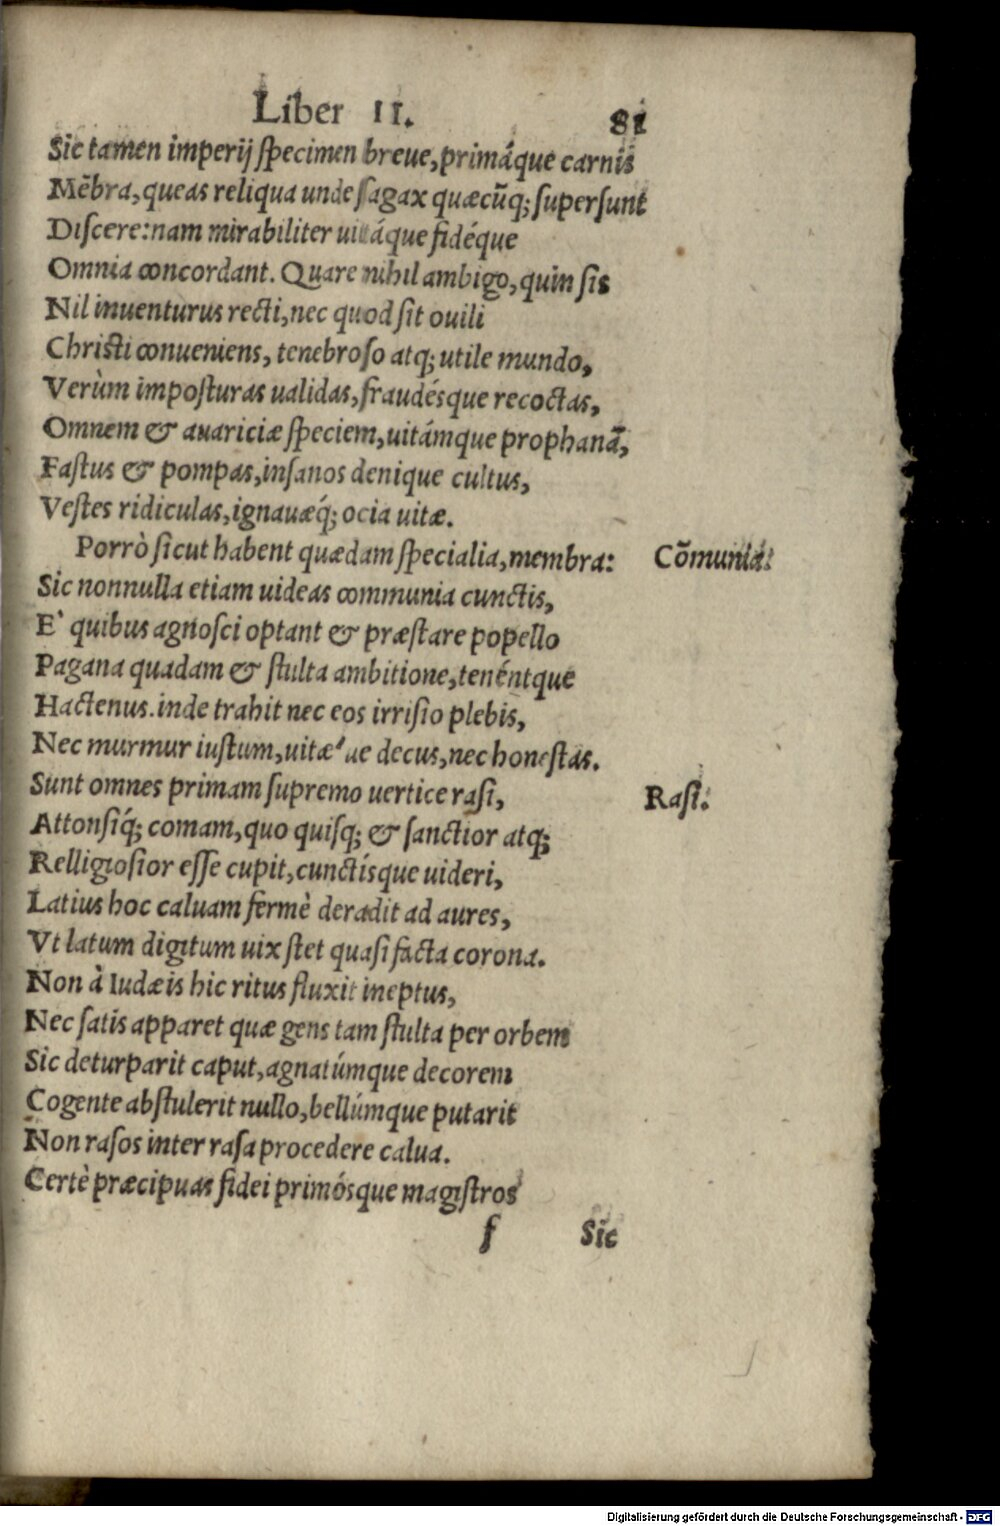 Liber II. 81
Sic tamen imperij specimen breue, primáque carnis
Mẽbra, queas reliqua unde sagax quæcũq; supersunt
Discere: nam mirabiliter uitáque fidéque
Omnia concordant. Quare nihil ambigo, quin sis
Nil inuenturus recti, nec quod sit ouili
Christi conueniens, tenebroso atq; utile mundo,
Verùm imposturas ualidas, fraudésque recoctas,
Omnem & auariciæ speciem, uitámque prophanã,
Fastus & pompas, insanos denique cultus,
Vestes ridiculas, ignauæq́; ocia uitæ.
Porrò sicut habent quædam specialia, membra: Cõmunia.
Sic nonnulla etiam uideas communia cunctis,
E` quibus agnosci optant & præstare popello
Pagana quadam & stulta ambitione, tenéntque
Hactenus. inde trahit nec eos irrisio plebis,
Nec murmur iustum, uitæ´ue decus, nec honestas.
Sunt omnes primam supremo uertice rasi, Rasi.
Attonsiq́; comam, quo quisq; & sanctior atq;
Relligiosior esse cupit, cunctísque uideri,
Latius hoc caluam fermè deradit ad aures,
Vt latum digitum uix stet quasi facta corona.
Non à Iudæis hic ritus fluxit ineptus,
Nec satis apparet quæ gens tam stulta per orbem
Sic deturparit caput, agnatúmque decorem
Cogente abstulerit nullo, bellúmque putarit
Non rasos inter rasa procedere calua.
Certè præcipuas fidei primósque magistros
f Sic
Digitalisierung gefördert durch die Deutsche Forschungsgemeinschaft - DFG